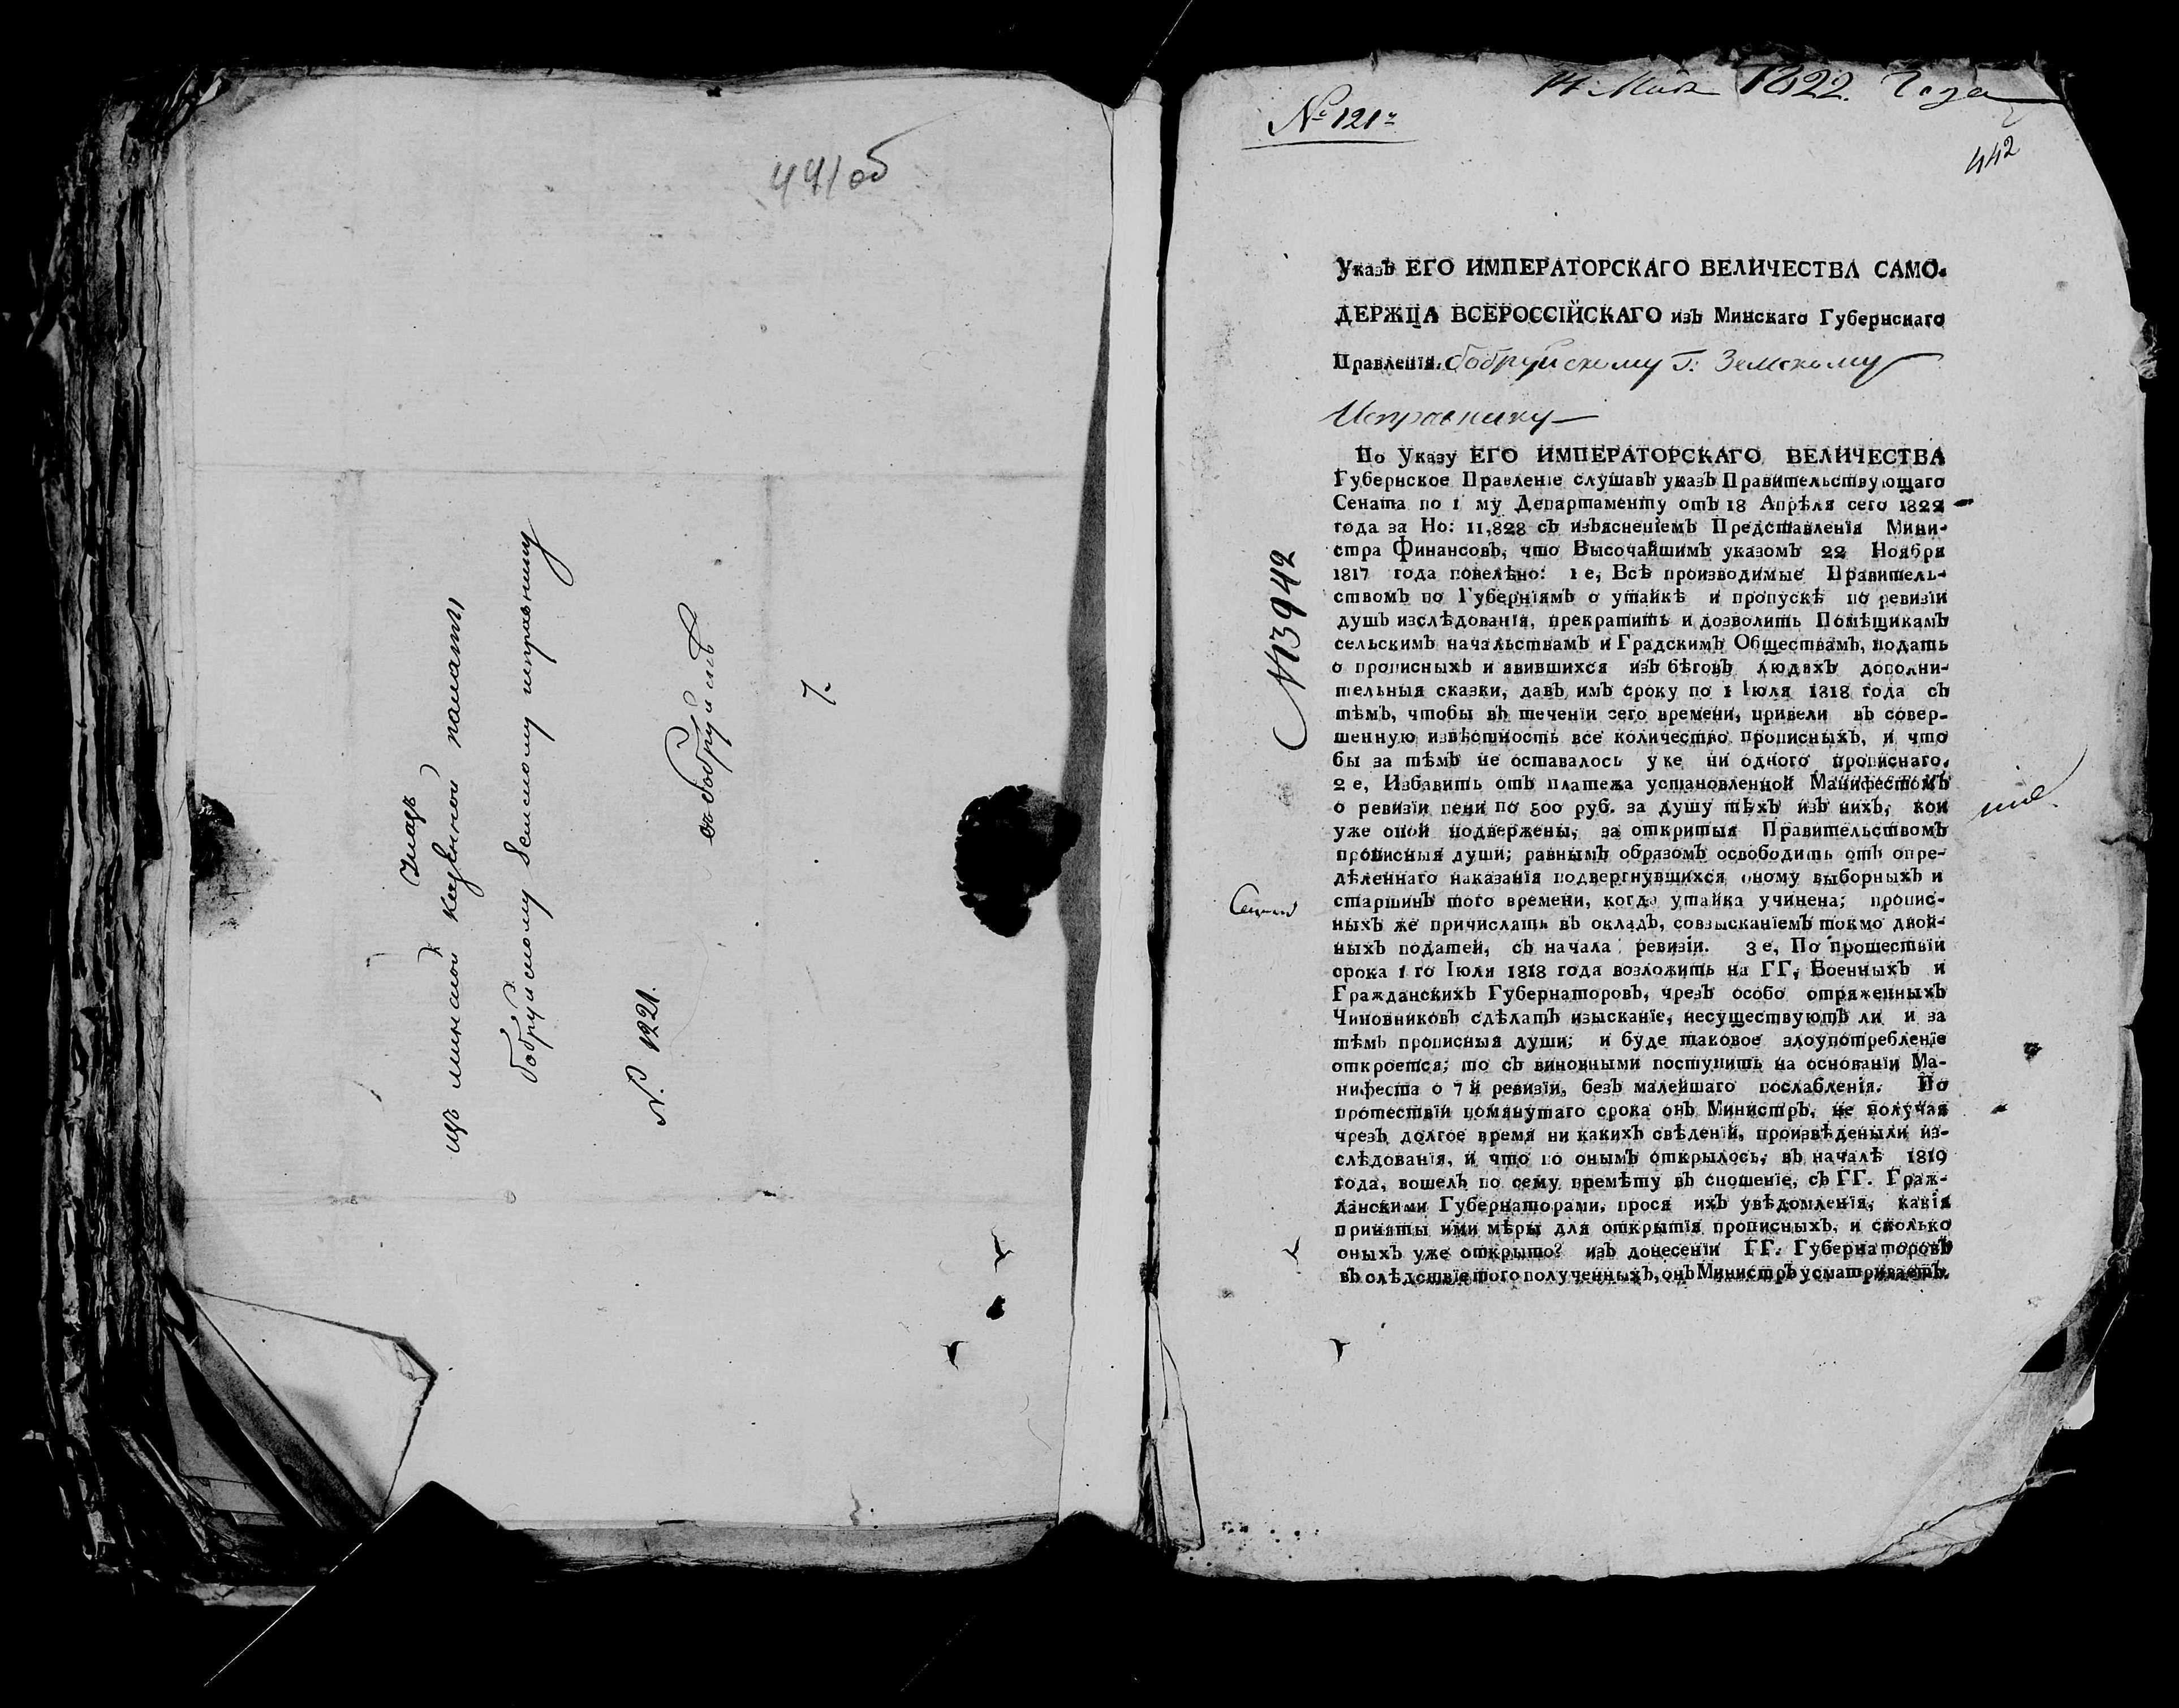 441 об
Указъ
изъ минской казенной палаты,
бобруискому земскому исправнику
№ 1221.
въ бобруискѣ
7.
14 Мая 1822. Года
№ 121
442
Указъ ЕГО ИМПЕРАТОРСКАГО ВЕЛИЧЕСТВА САМО-
ДЕРЖЦА ВСЕРОССІЙСКАГО изъ Минскаго Губернскаго
Правленія. бобруискому Г: Земскому
Исправнику
№ 13942
По Указу ЕГО ИМПЕРАТОРСКАГО ВЕЛИЧЕСТВА
Губернское Правленіе слушавъ указъ Правительствующаго
Сената по 1 му Департаменту отъ 18 Апрѣля сего 1822
года за Но: 11,828 съ изъясненіемъ Представленія Мини-
стра Финансовъ, что Высочайшимъ указомъ 22 Ноября
1817 года повелѣно: 1 е, Всѣ производимые Правитель-
ствомъ по Губерніямъ о утайкѣ и пропускѣ по ревизіи
душъ изслѣдованія, прекратить и дозволить Помѣщикамъ
сельскимъ начальствамъ и Градскимъ Обществамъ, подать
о прописныхъ и явившихся изъ бѣговъ людяхъ дополни-
тельныя сказки, давъ имъ сроку по 1 Іюля 1818 года съ
тѣмъ, чтобы въ теченіи сего времени, привели въ совер-
шенную извѣстность все количество прописныхъ, и что
бы за тѣмъ не оставалось уже ни одного прописнаго.
2 е, Избавить отъ платежа установленной Манифестомъ
о ревизіи пени по 500 руб. за душу тѣхъ изъ нихъ, кои
уже оной подвержены, за откритыя Правительствомъ
прописныя души; равнымъ образомъ освободить отъ опре-
дѣленнаго наказанія подвергнувшихся оному выборныхъ и
старшинъ того времени, когда утайка учинена; пропис-
ныхъ же причислять въ окладъ, совзысканіемъ токмо двой-
ныхъ податей, съ начала ревизіи. 3 е, По прошествіи
срока 1 го Іюля 1818 года возложить на ГГ, Военныхъ и
Гражданскихъ Губернаторовъ, чрезъ особо отряженныхъ
Чиновниковъ сдѣлать изысканіе, несуществуютъ ли и за
тѣмъ прописныя души; и буде таковое злоупотребленіе
откроется; то съ виновными поступить на основаніи Ма-
нифеста о 7 й ревизіи, безъ малейшаго послабленія. По
протествіи помянутаго срока онъ Министръ, не получая
чрезъ долгое время ни какихъ свѣденій, произвѣденыли из-
слѣдованія, и что по онымъ открылось, въ началѣ 1819
года, вошелъ по сему премѣту въ сношеніе, съ ГГ. Граж-
данскими Губернаторами, прося ихъ увѣдомленія, какія
приняты ими мѣры для открытія прописныхъ, и сколько
оныхъ уже открыто? изъ донесеніи ГГ. Губернаторовъ
въ слѣдствіе того полученныхъ, онъ Министръ усматриваетъ.